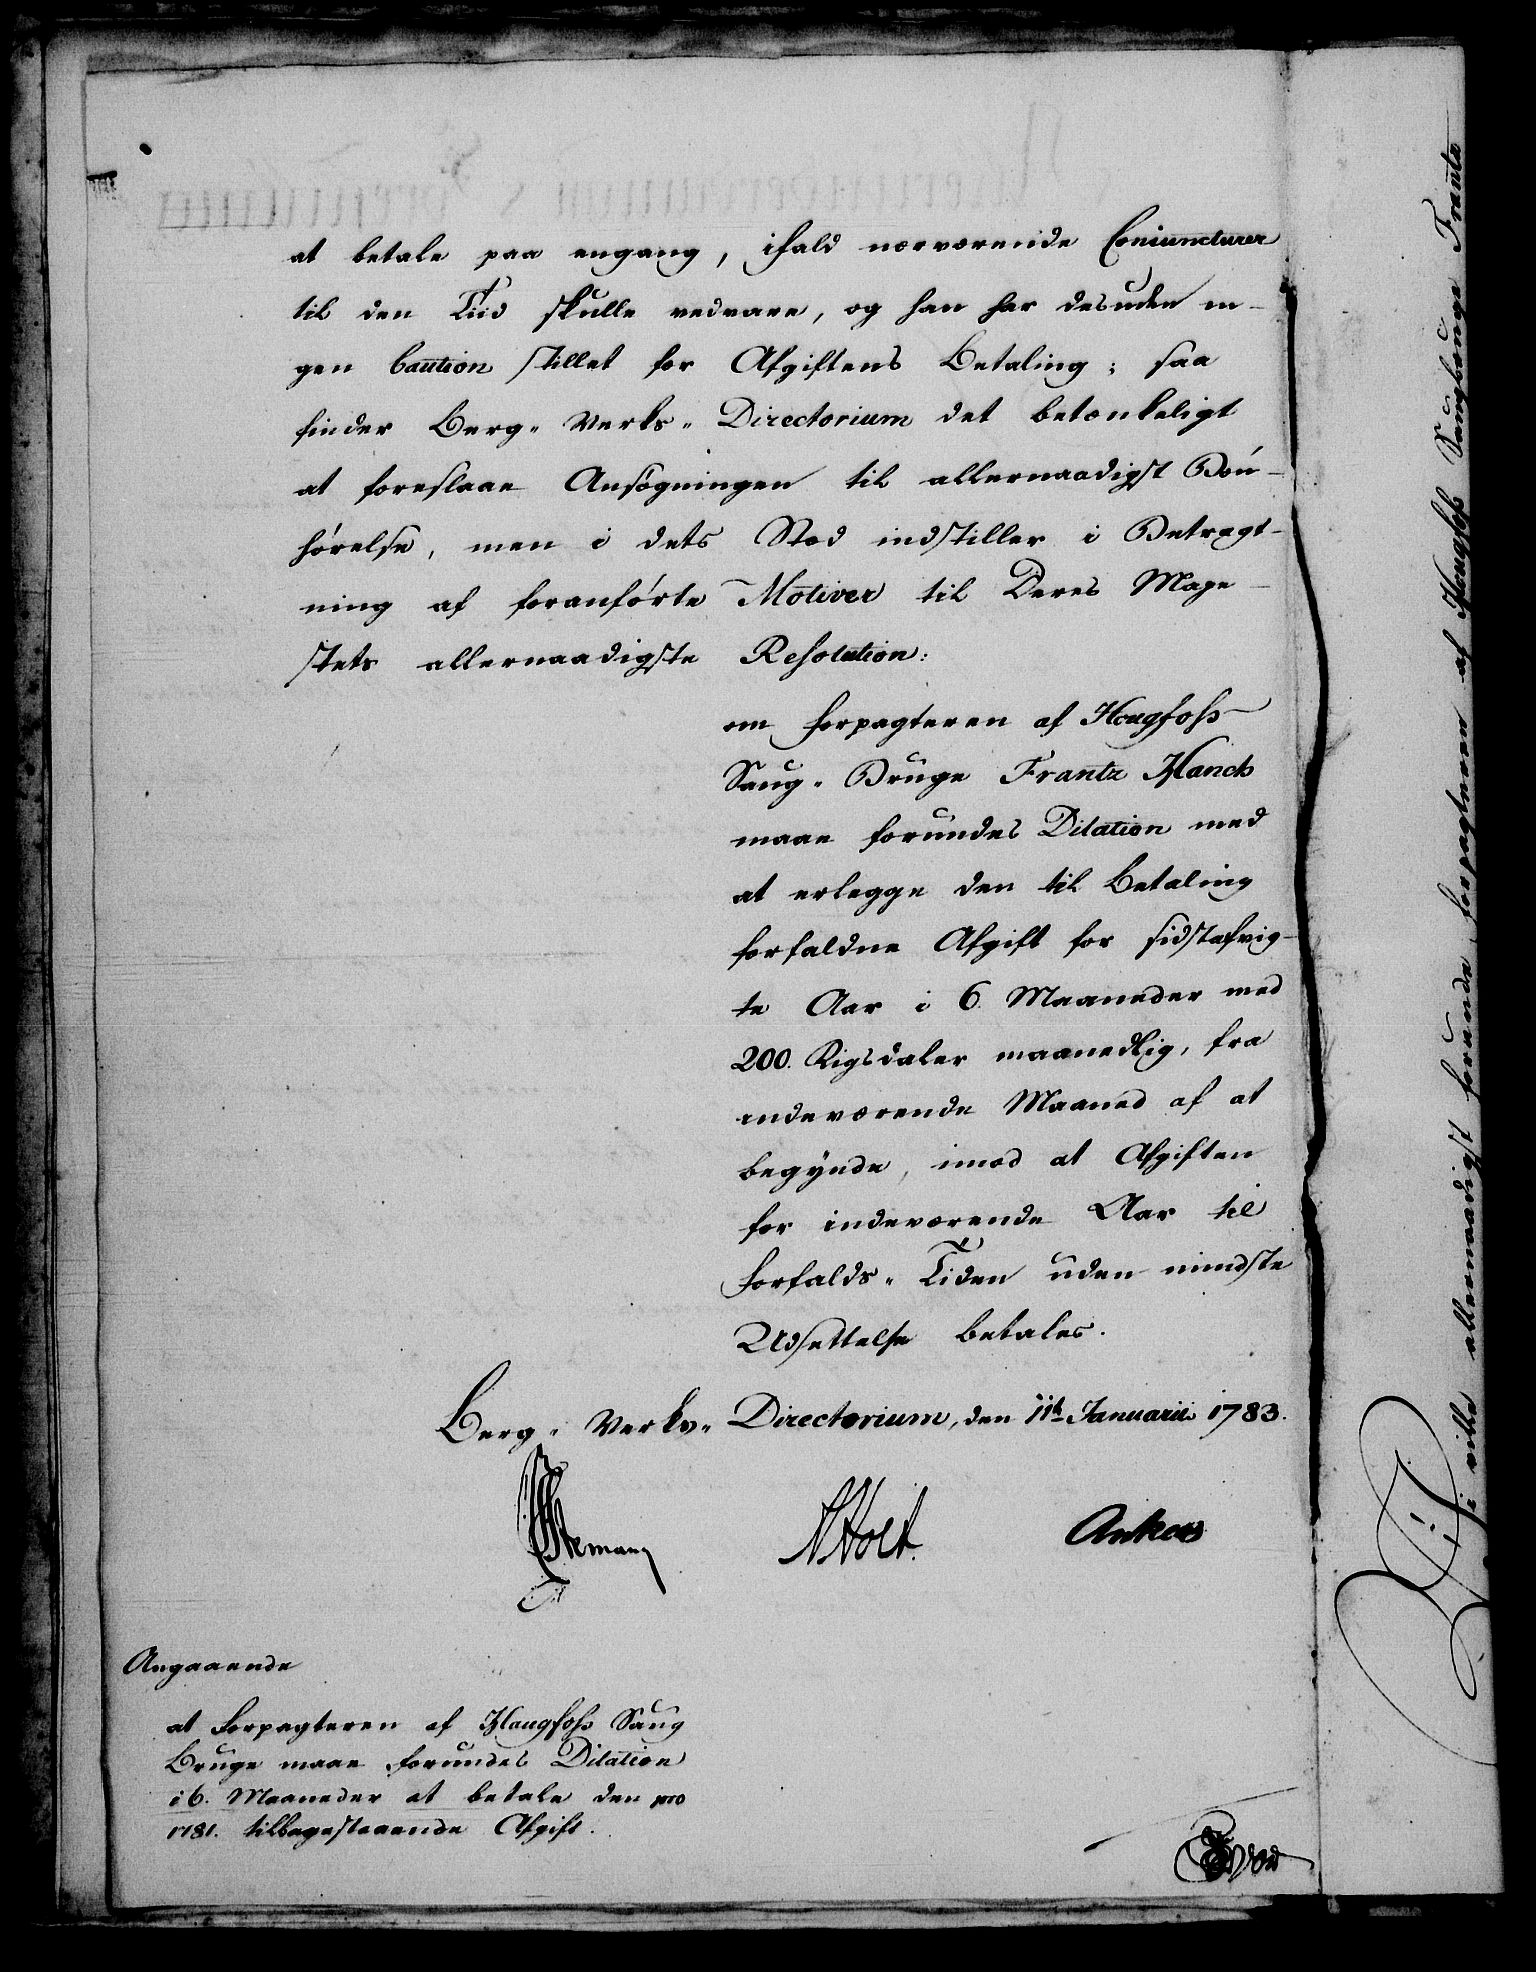 at betale paa engang, ifald nærværende Coniuncturer
til den Tid skulle vedvare, og han har desuden in-
gen Caution stillet for Afgiftens Betaling; saa
finder Berg- Verks- Directorium det betænkeligt
at foreslaae Ansøgningen til allernaadigst Bøn-
hørelse, men i dets Sted indstiller i Betragt-
ning af foranførte Motiver til Deres Maye-
stets allernaadigste Resolution:
om Forpagteren af Hougfoss
Saug- Bruge Frantz Hanch
maae forundes Dilation med
at erlegge den til Betaling
forfaldne Afgift for sidstafvig-
te Aar i 6 Maaneder med
200. Rigsdaler maanedlig, fra
indeværende Maaned af at
begynde, imod at Afgiften
for indeværende Aar til
Forfalds- Tiden uden mindste
Udsettelse betales.
Berg- Verks- Directorium, den 11te Januarii 1783.
Stemann
Holt.
Anker
Angaaende
at Forpagteren af Haugfoss Saug
Bruge maae forundes Dilation
i 6. Maaneder at betale den pro
1781. tilbagestaaende Afgift.
Vi ville allernaadigst forunde forpagteren af Hougfoss Saugbruge Frantz